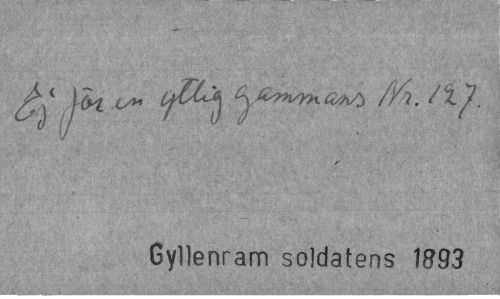 Ej för en yttlig gammans Nr. 127.
Gyllenram soldatens 1893